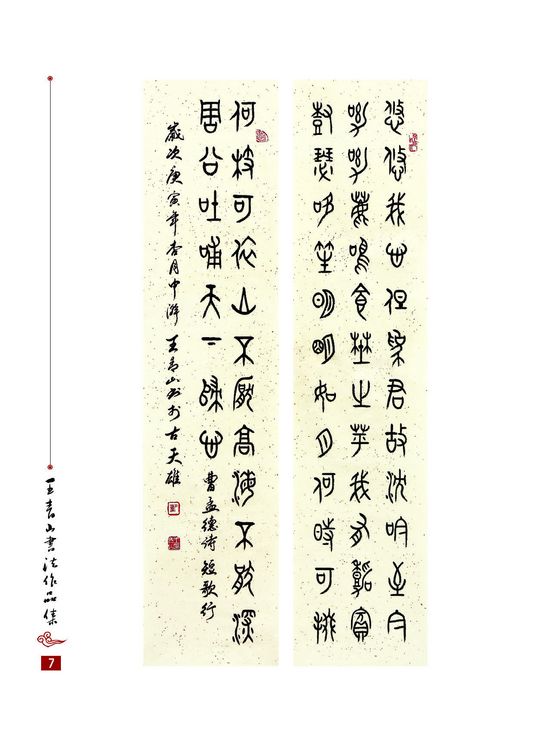 悠悠我心但為君故沈吟至今
呦呦鹿鳴食埜之苹我有嘉賓
鼓瑟吹笙明明如月何時可掇
何枝可依山不厭高海不厭深
周公吐哺天下歸心 曹孟德詩 短歌行
歲次庚寅年杏月中澣 王青山書於古天雄
王青山書法作品集
7